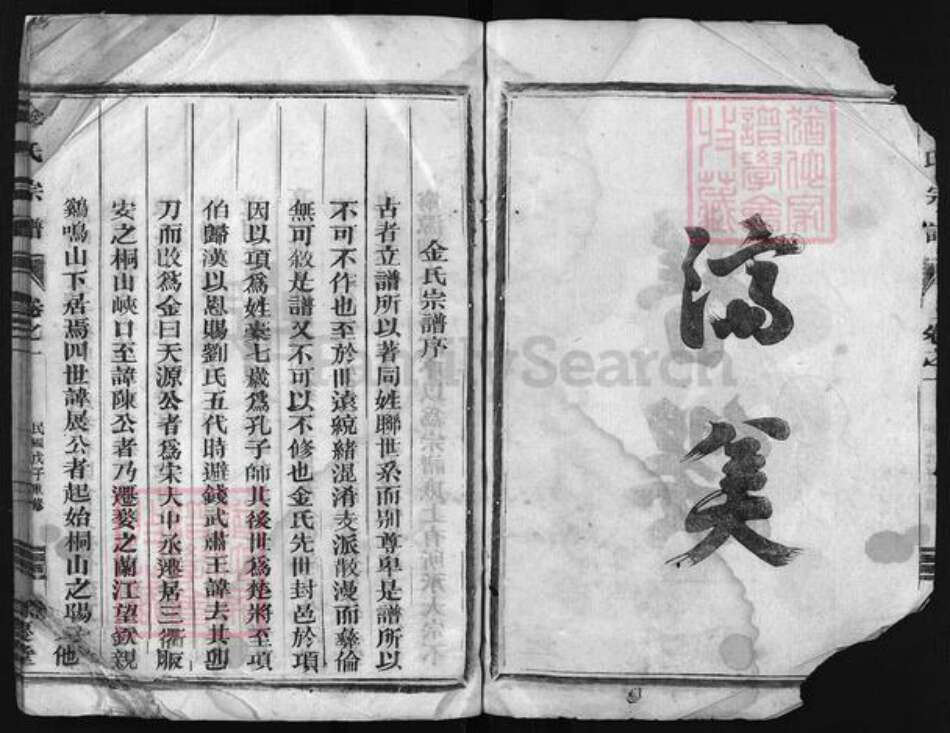 濟美
猶他家譜學會收藏
氏宗譜
卷之一
金氏宗譜序
古者立譜所以著同姓聯世系而別尊卑是譜所以
不可不作也至於世遠統緒混淆支派散漫而彝倫
無可敘是譜又不可以不修也金氏先世封邑於項
因以項為姓橐七歲為孔子師其後世為楚將至項
伯歸漢以恩賜劉氏五代時避錢武肅王諱去其卯
刀而改為金曰天源公者為宋大中丞遷居三衢脤
安之桐山峽口至諱陳公者乃遷婺之蘭江望欽親
鷄鳴山下居焉四世諱展公者起始桐山之陽 他
金氏宗譜
卷之一
民國戊子重修
FamilySearch